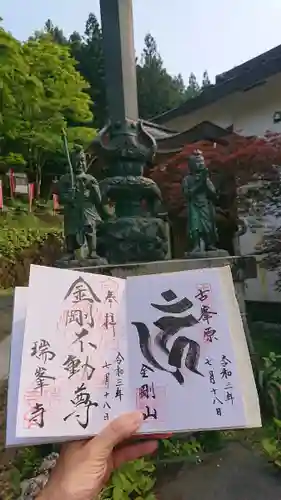 奉拝
令和三年
七月十八日
金剛不動尊
瑞峯寺
古峯原
令和三年
七月十八日
金剛山